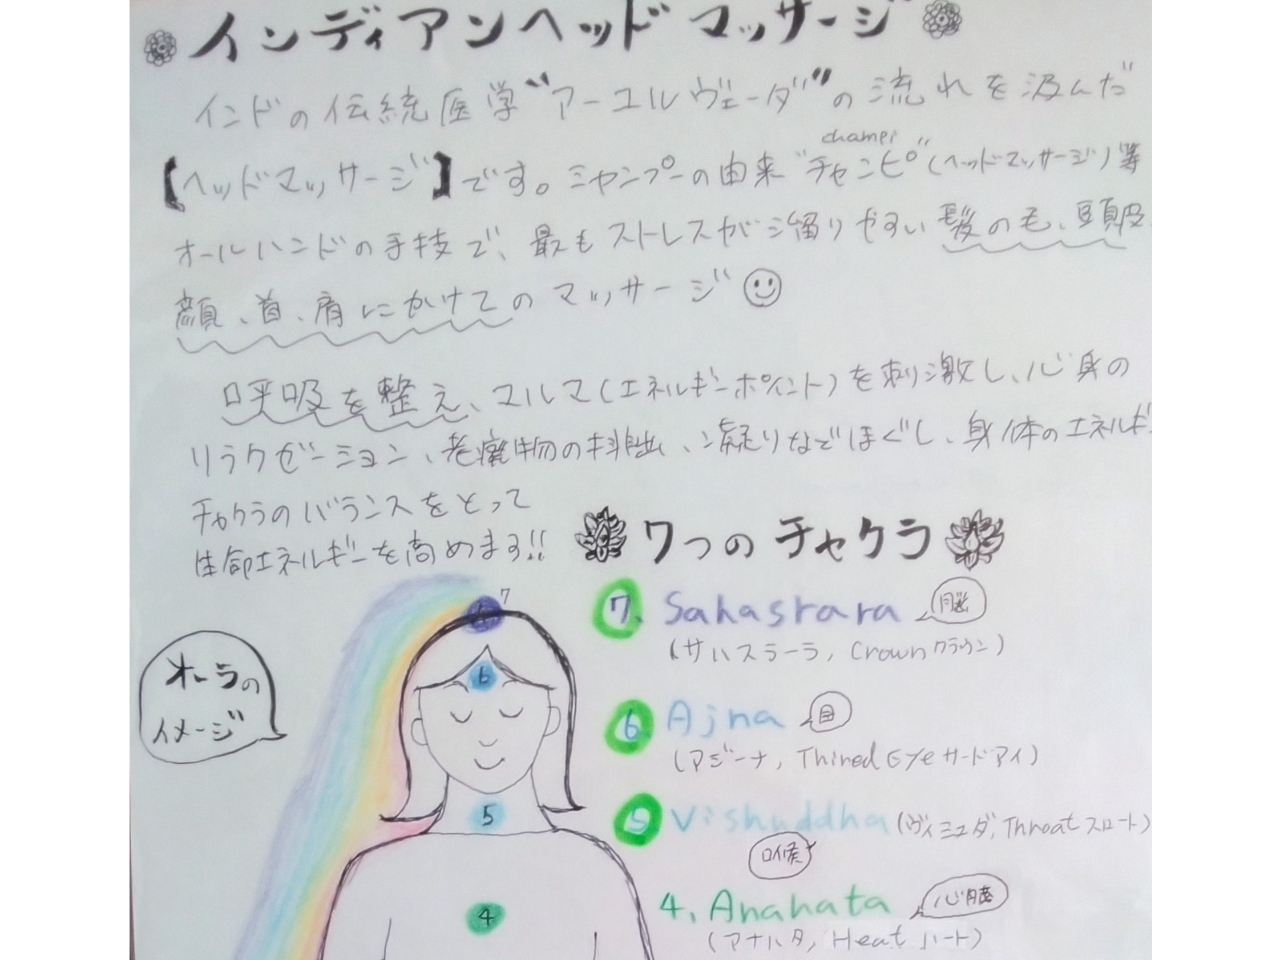 インディアンヘッドマッサージ
インドの伝統医学"アーユルヴェーダ"の流れを汲んだ
champi
【ヘッドマッサージ】です。シャンプーの由来"チャンピ"(ヘッドマッサージ)等
オールハンドの手技で、最もストレスが溜りやすい髪の毛、頭皮、
顔、首、肩にかけてのマッサージ
呼吸を整え、マルマ(エネルギーポイント)を刺激し、心身の
リラクゼーション、老廃物の排出、凝りなどほぐし、身体のエネルギー
チャクラのバランスをとって
生命エネルギーを高めます!!
7つのチャクラ
7
7. Sahasrara 脳
(サハスラーラ, Crown クラウン)
オーラの
イメージ
6
6 Ajna 目
(アジーナ, Thired Eye サードアイ)
5
5 Vishuddha (ヴィシュダ, Throat スロート)
口喉
4
4. Anahata 心臓
(アナハタ, Heat ハート)